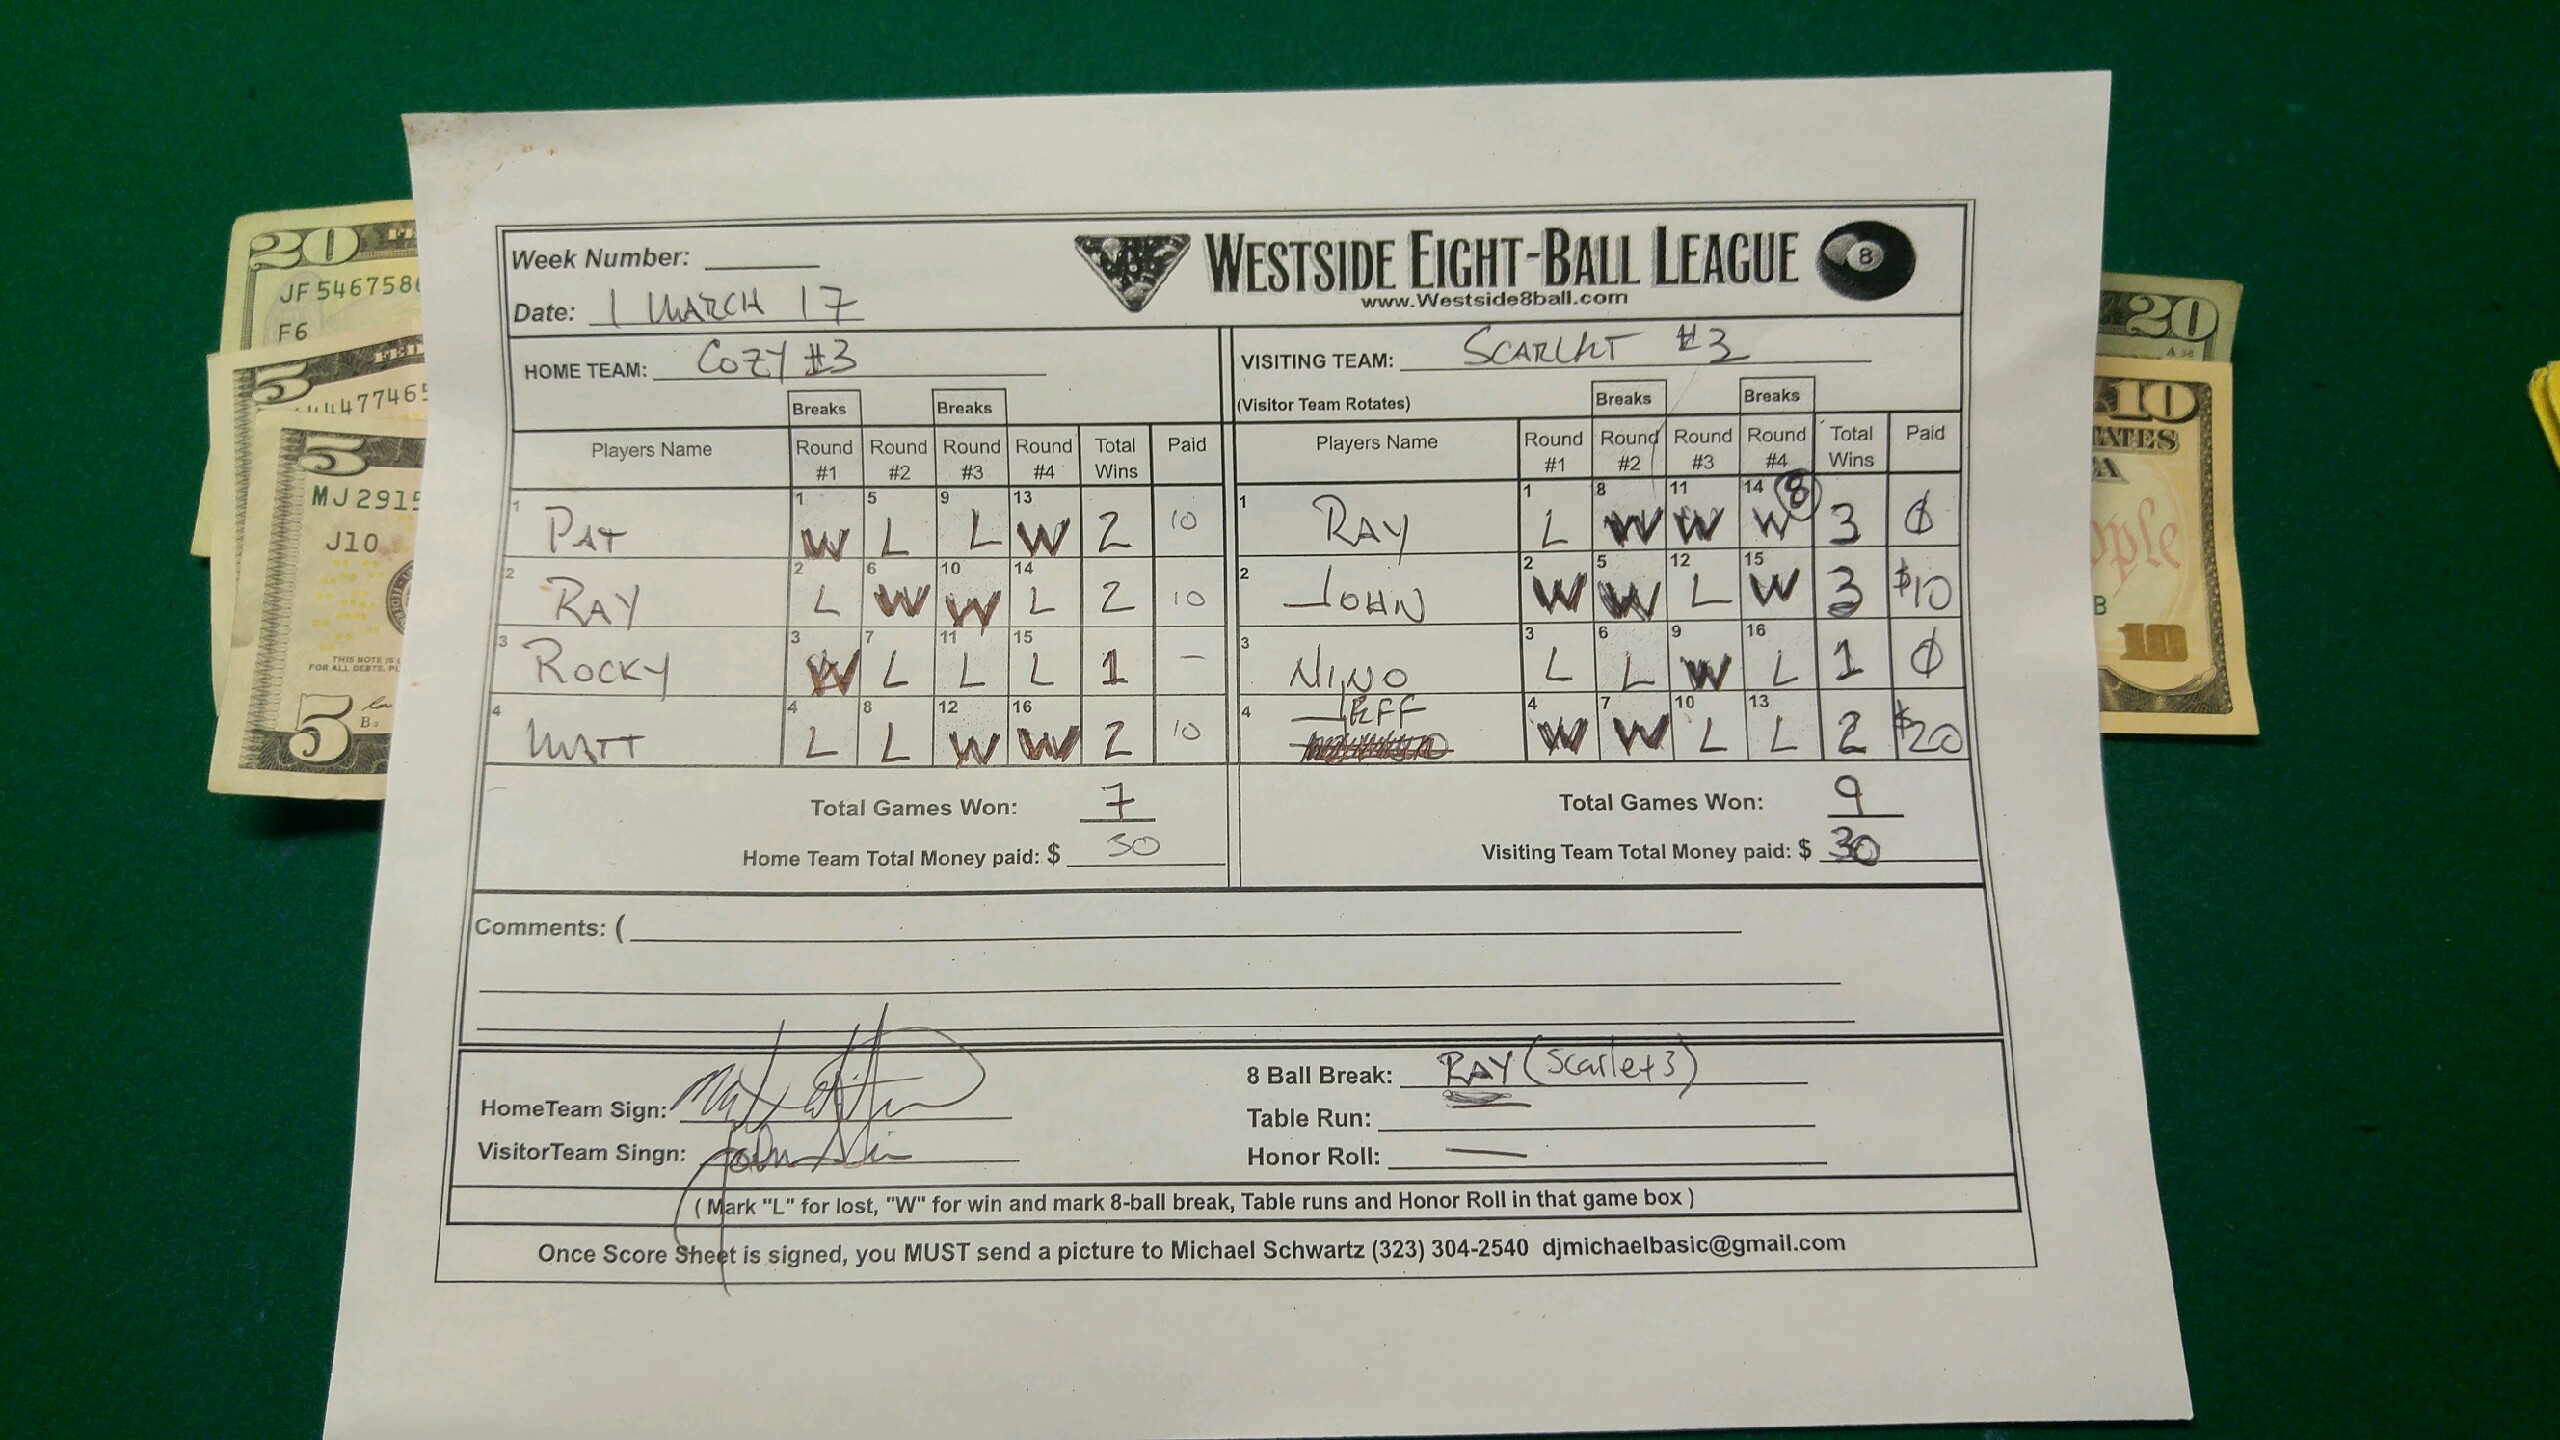 Week Number:
WESTSIDE EIGHT-BALL LEAGUE
8
www.Westside8ball.com
Date: 1 MARCH 17
HOME TEAM: COZY #3
VISITING TEAM: SCARLET #3
(Visitor Team Rotates)
Breaks Breaks Breaks Breaks
Players Name Round #1 Round #2 Round #3 Round #4 Total Wins Paid
Players Name Round #1 Round #2 Round #3 Round #4 Total Wins Paid
1 PAT 1 W 5 L 9 L 13 W 2 10
1 RAY 1 L 8 W 11 W 14 W 8 3 0
2 RAY 2 L 6 W 10 W 14 L 2 10
2 JOHN 2 W 5 W 12 L 15 W 3 $10
3 ROCKY 3 W 7 L 11 L 15 L 1 –
3 NINO 3 L 6 L 9 W 16 L 1 0
4 MATT 4 L 8 L 12 W 16 W 2 10
4 JEFF 4 W 7 W 10 L 13 L 2 $20
Total Games Won: 7
Total Games Won: 9
Home Team Total Money paid: $ 30
Visiting Team Total Money paid: $ 30
Comments: (
HomeTeam Sign:
VisitorTeam Singn: John
8 Ball Break: RAY (Scarlet 3)
Table Run:
Honor Roll: —
( Mark "L" for lost, "W" for win and mark 8-ball break, Table runs and Honor Roll in that game box )
Once Score Sheet is signed, you MUST send a picture to Michael Schwartz (323) 304-2540 djmichaelbasic@gmail.com
20
JF 546758
F6
5
447746
5
MJ 2915
J10
5
20
10
10